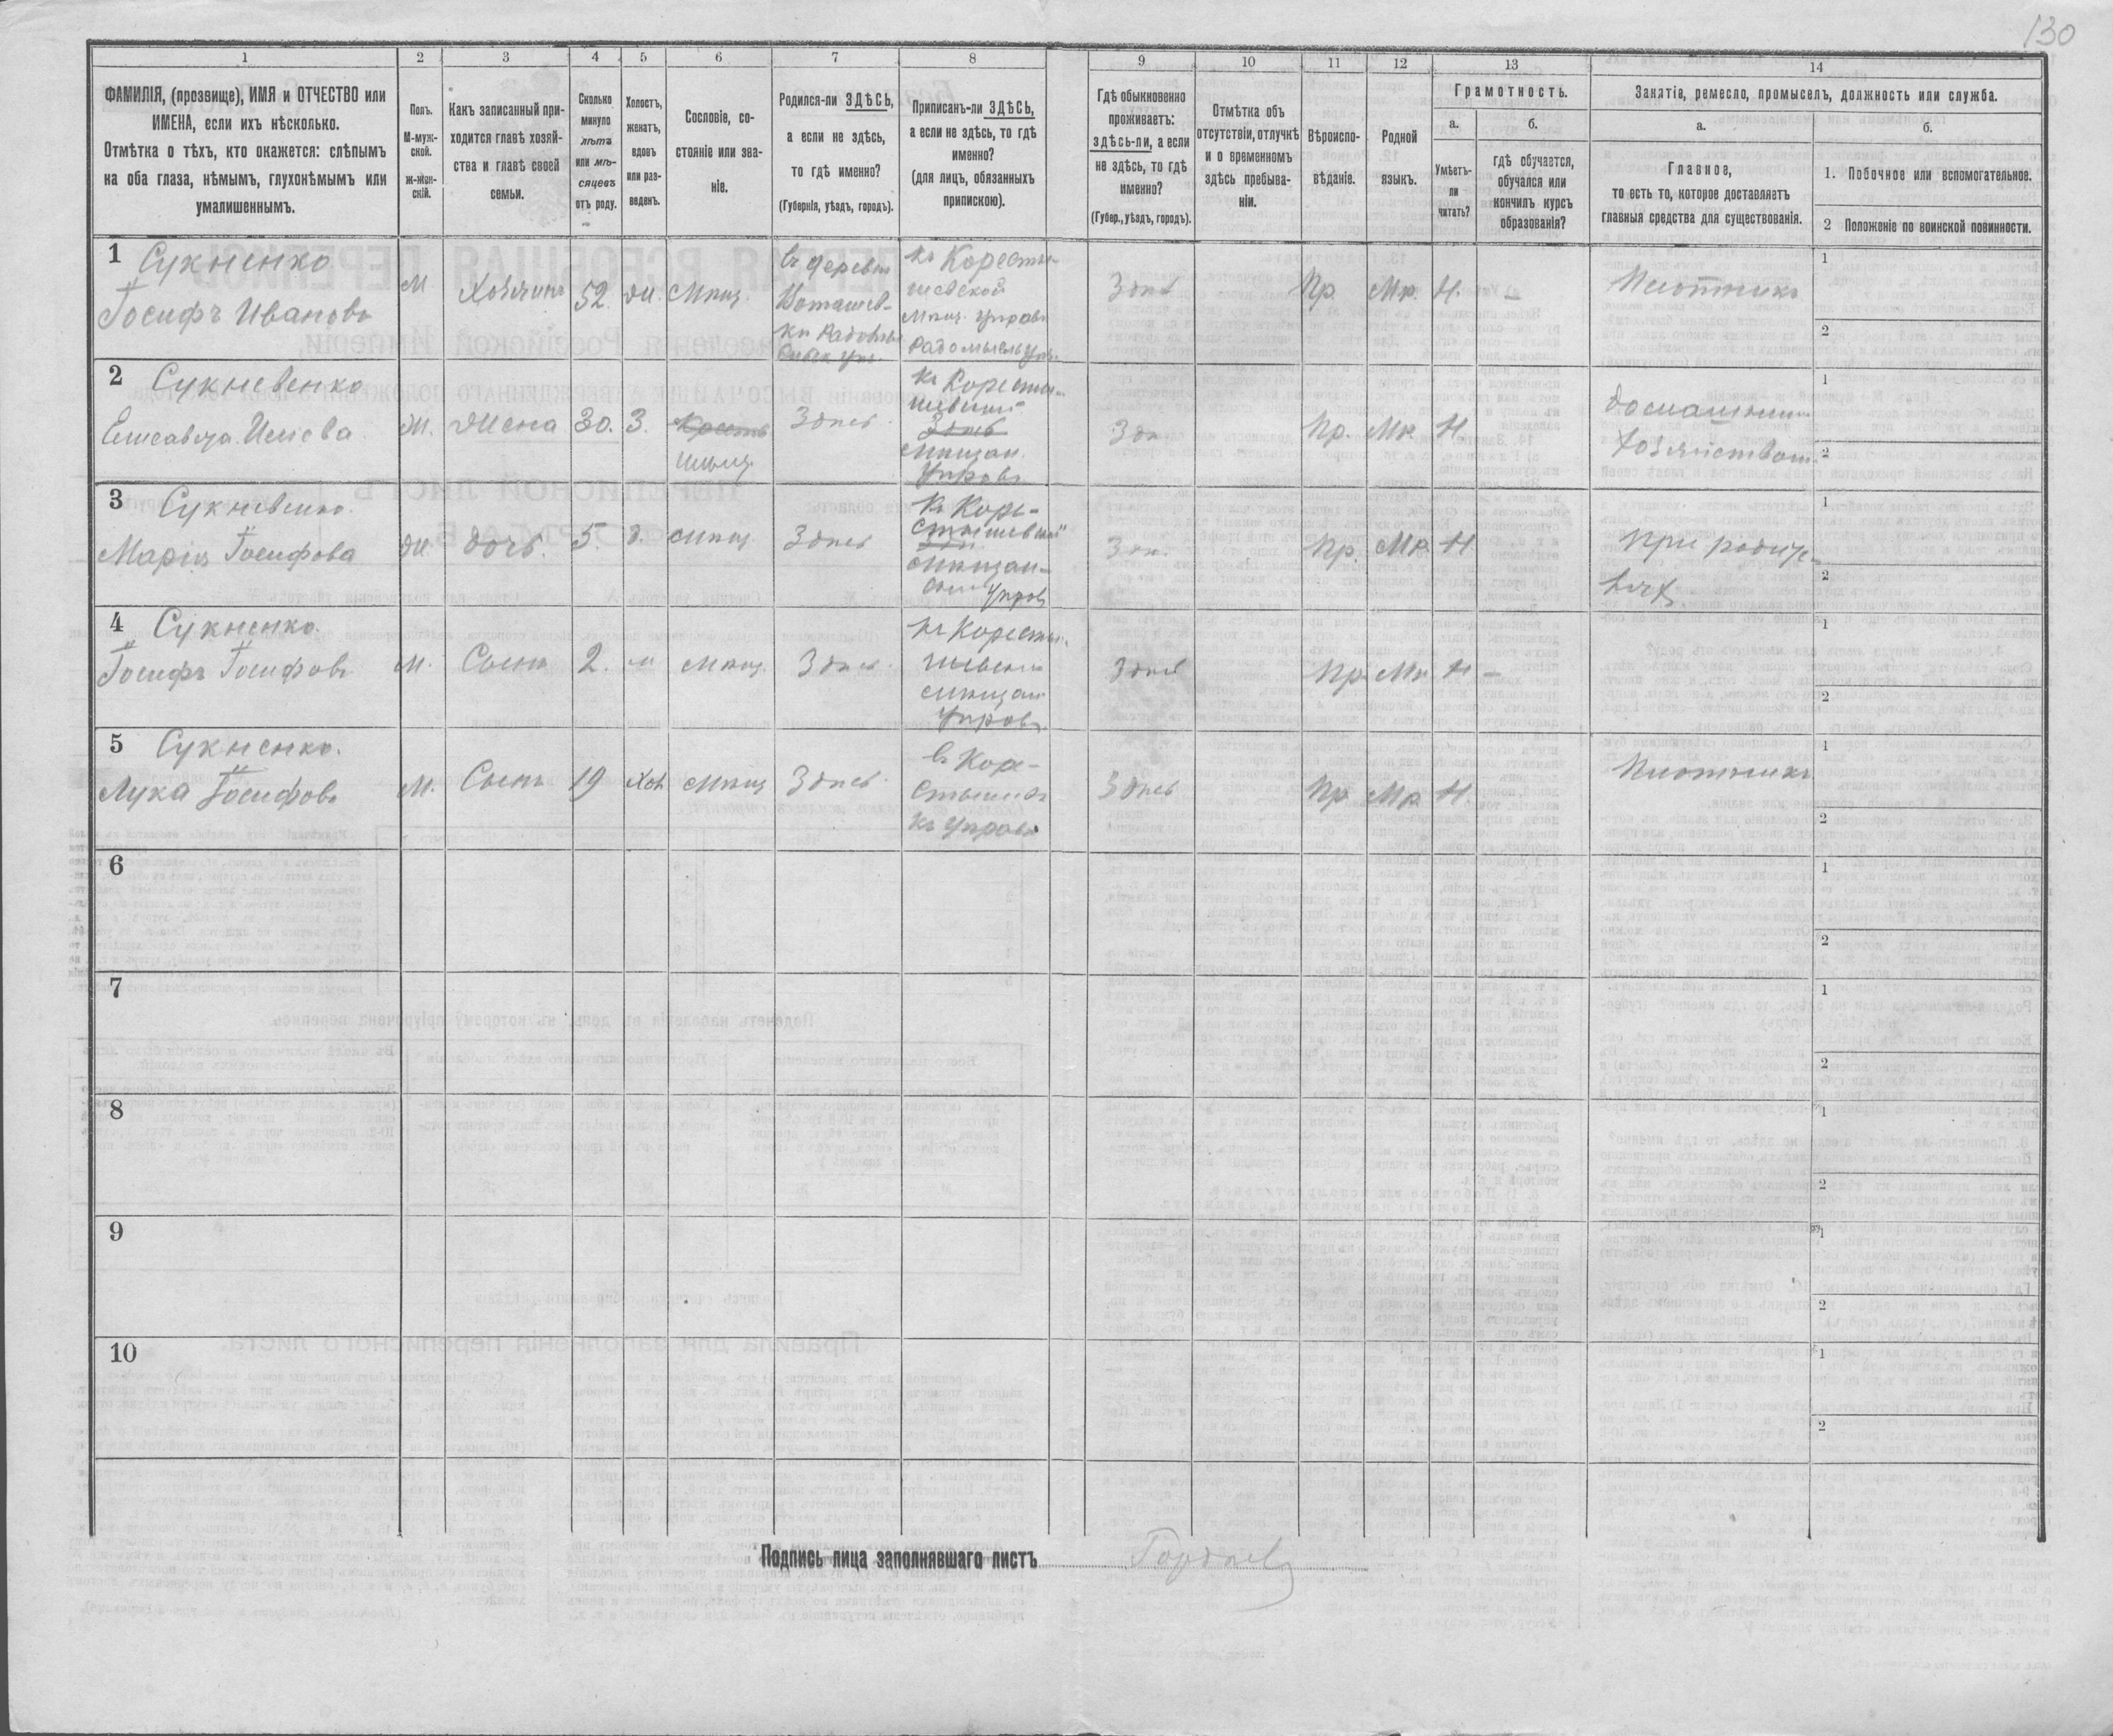 130
1 2 3 4 5 6 7 8 9 10 11 12 13 14
ФАМИЛІЯ, (прозвище), ИМЯ и ОТЧЕСТВО или
ИМЕНА, если ихъ нѣсколько.
Отмѣтка о тѣхъ, кто окажется: слѣпымъ
на оба глаза, нѣмымъ, глухонѣмымъ или
умалишеннымъ.
Полъ.
М-муж-
ской.
Ж-жен-
скій.
Какъ записанный при-
ходится главѣ хозяй-
ства и главѣ своей
семьи.
Сколько
минуло
лѣтъ
или мѣ-
сяцевъ
отъ роду.
Холостъ,
женатъ,
вдовъ
или раз-
веденъ.
Сословіе, со-
стояніе или зва-
ніе.
Родился-ли ЗДѢСЬ,
а если не здѣсь,
то гдѣ именно?
(Губернія, уѣздъ, городъ).
Приписанъ-ли ЗДѢСЬ,
а если не здѣсь, то гдѣ
именно?
(для лицъ, обязанныхъ
припискою).
Гдѣ обыкновенно
проживаетъ:
здѣсь-ли, а если
не здѣсь, то гдѣ
именно?
(Губер., уѣздъ, городъ).
Отмѣтка объ
отсутствіи, отлучкѣ
и о временномъ
здѣсь пребыва-
ніи.
Вѣроиспо-
вѣданіе.
Родной
языкъ.
Грамотность.
а.
Умѣетъ-
ли
читать?
б.
гдѣ обучается,
обучался или
кончилъ курсъ
образованія?
Занятіе, ремесло, промыселъ, должность или служба.
а.
Главное,
то есть то, которое доставляетъ
главныя средства для существованія.
б.
1. Побочное или вспомогательное.
2 Положеніе по воинской повинности.
1 Сукненко
Іосифъ Ивановъ
М Хозяинъ 52. Ж. Мѣщ.
въ деревнѣ
къ Коресты-
шевской
Мѣщ. управѣ
Радомысль у.
Здѣсь Пр. Мр. Н. —
Плотникъ
1
2
2 Сукневенко
Елисавета
Ж. Жена 30. З. Крест
Здѣсь
къ Корести-
Здѣсь
Мѣщан.
Управѣ
Здѣ. Пр. Мр. Н
домашнимъ
хозяйствомъ
1
2
3 Сукневенко.
Марія Іосифова
Ж. дочь. 5. Д. Мѣщ. Здѣсь
къ Коре-
стышевской
Мѣщан-
ской Управ
Здѣ. Пр. Мр. Н
при родите-
ляхъ.
1
2
4 Сукненко.
Іосифъ Іосифовъ
М. Сынъ 2. М Мѣщ. Здѣсь.
къ Коресты-
шевской
Мѣщан
Управѣ
Здѣсь Пр. Мр Н —
1
2
5 Сукненко.
Лука Іосифовъ
М. Сынъ 19 Хол Мѣщ Здѣсь.
въ Коре-
Управѣ
Здѣсь Пр Мр Н
Плотникъ
1
2
6
1
2
7
1
2
8
1
2
9
1
2
10
1
2
Подпись лица заполнявшаго листъ